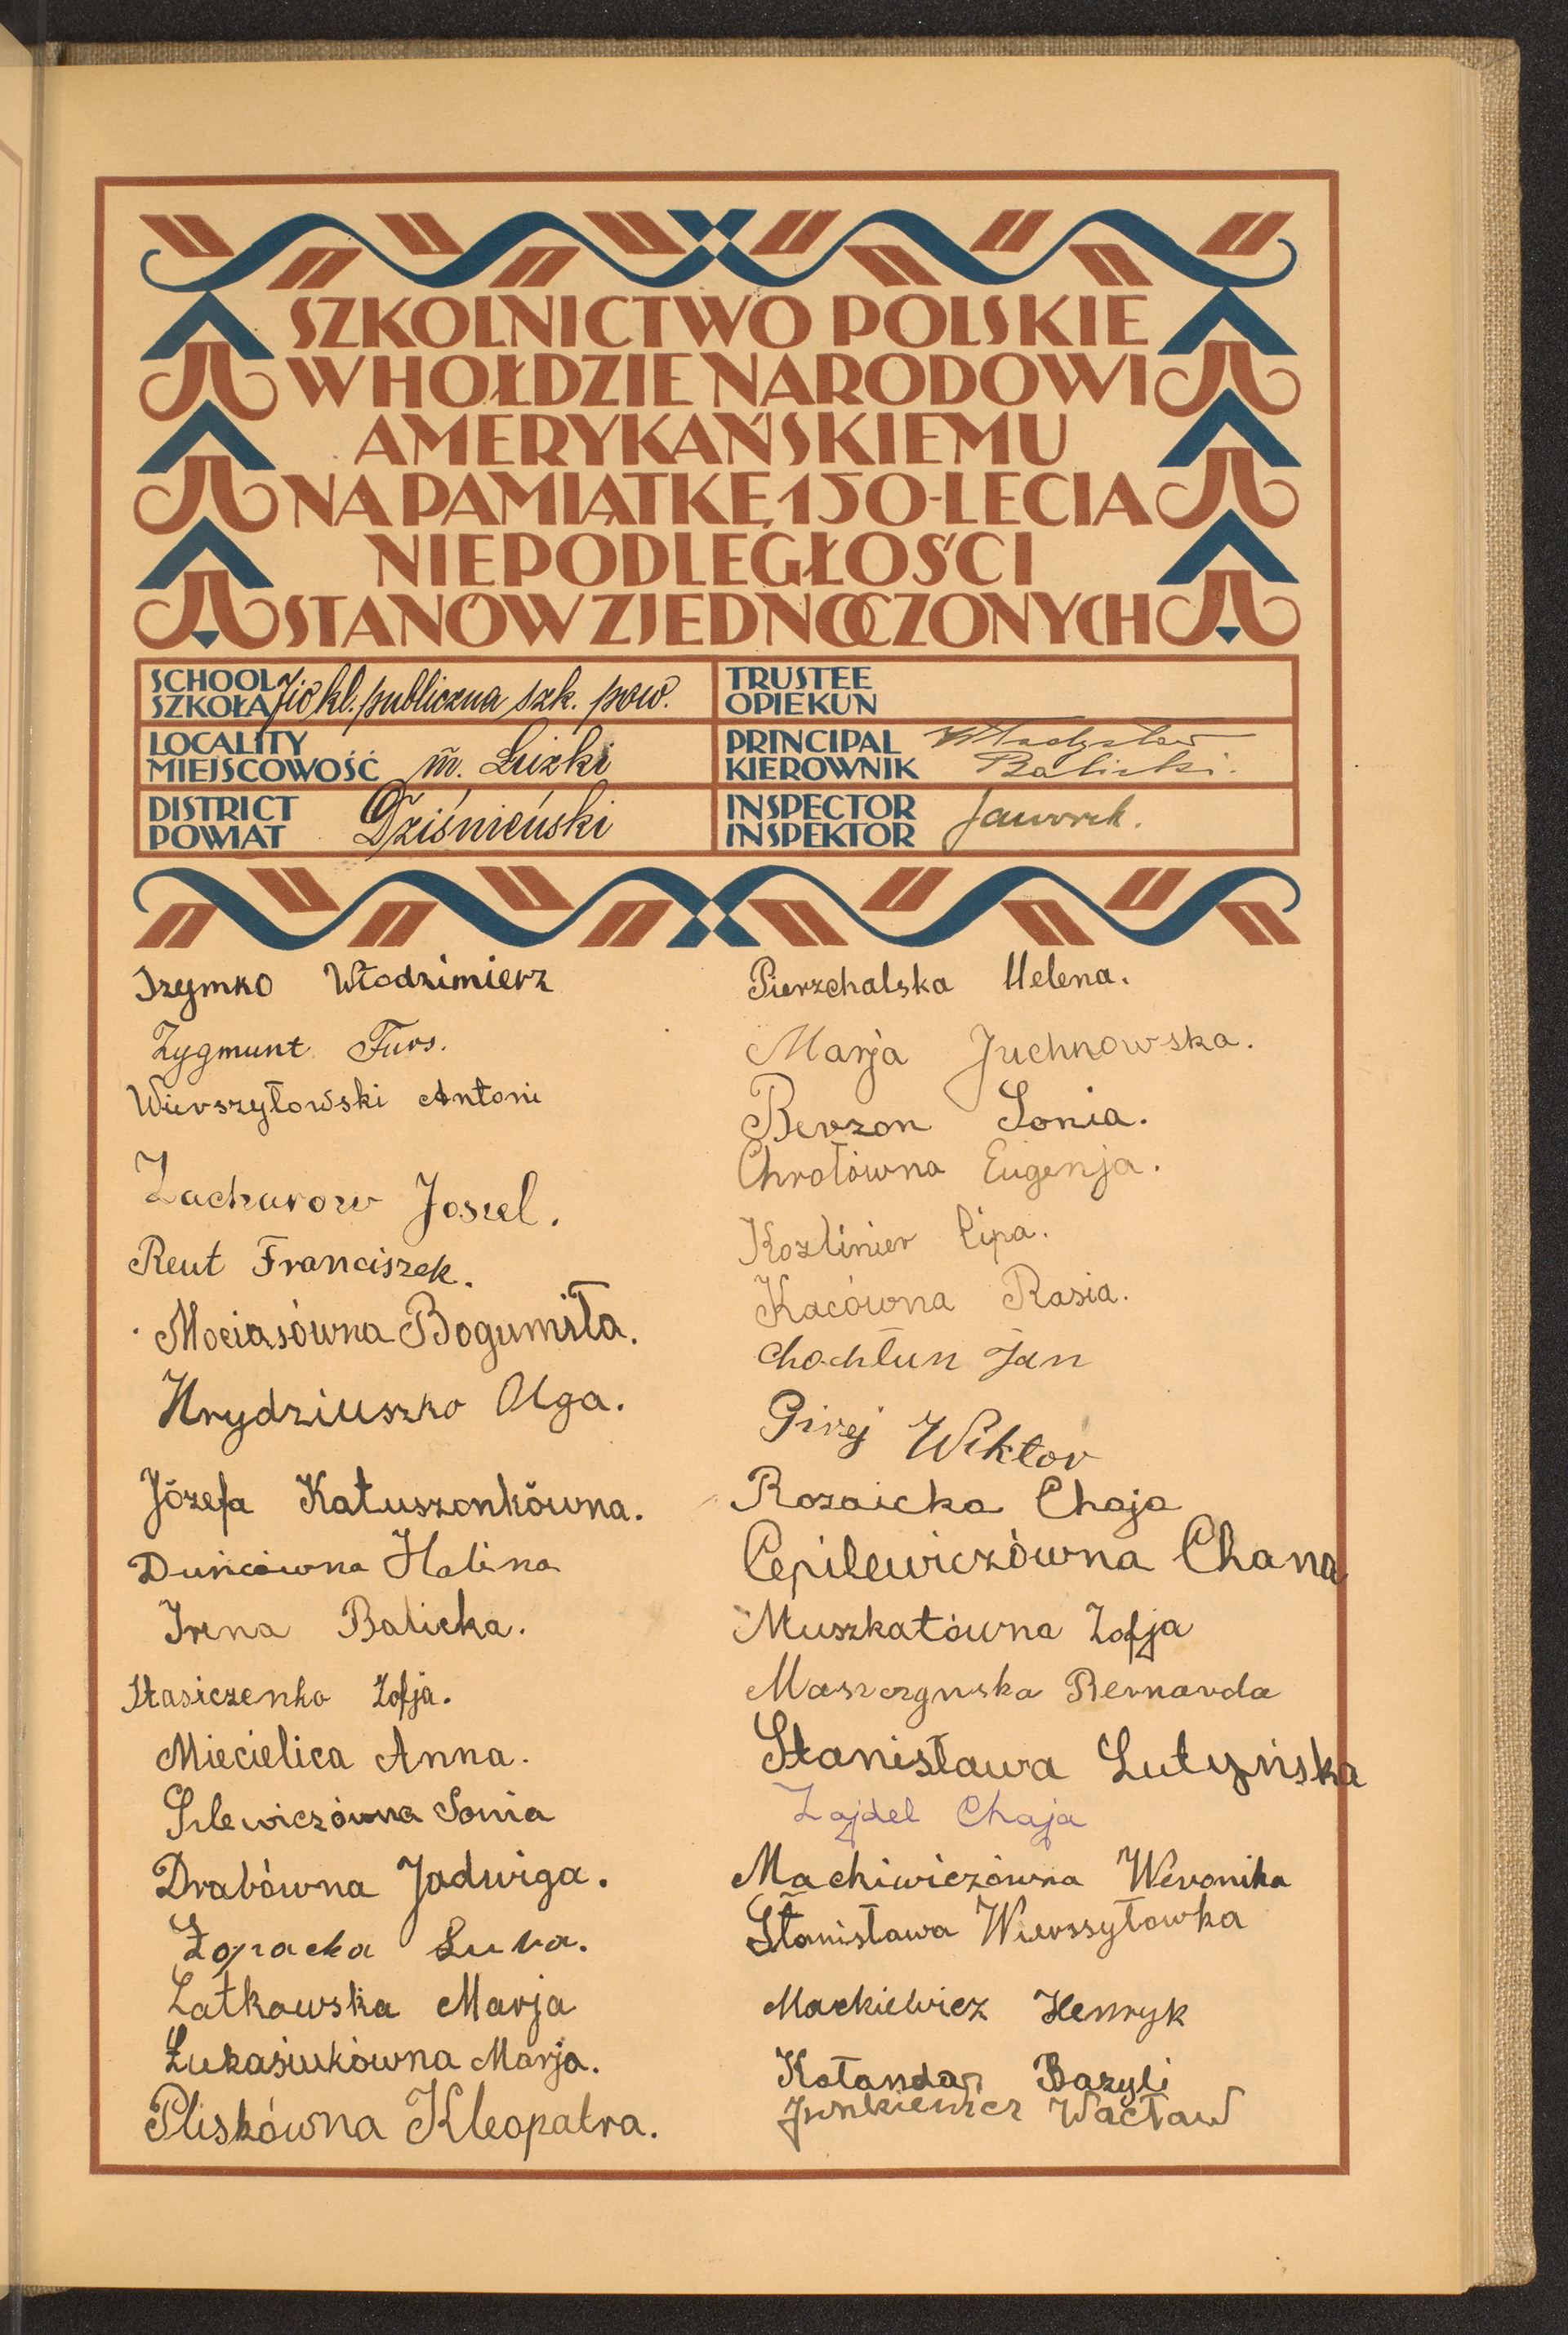 SZKOLNICTWO POLSKIE
W HOŁDZIE NARODOWI
AMERYKAŃSKIEMU
NA PAMIĄTKĘ 150-LECIA
NIEPODLEGŁOŚCI
STANÓW ZJEDNOCZONYCH
SCHOOL
SZKOŁA
kl. publiczna szk. pow.
TRUSTEE
OPIEKUN
LOCALITY
MIEJSCOWOŚĆ m. Łużki
PRINCIPAL
KIEROWNIK
Władysław
Balicki.
DISTRICT
POWIAT
Dziśnieński
INSPECTOR
INSPEKTOR
Jaworek.
Szymko Włodzimierz
Zygmunt Furs.
Wierszyłowski Antoni
Zacharow Joszel.
Reut Franciszek.
Mociasówna Bogumiła.
Hrydziuszko Olga.
Józefa Katuszonkówna.
Duńcówna Halina
Irena Balicka.
Stasiczenko Zofja.
Miecielica Anna.
Sonia
Drabówna Jadwiga.
Łopacka
Łatkowska Marja
Łukasiukówna Marja.
Pliskówna Kleopatra.
Pierzchalska Helena.
Marja Juchnowska.
Berzon Sonia.
Chrołówna Eugenja.
Kozliner Cipa.
Kacówna Rasia.
Chochłun Jan
Girej Wiktor
Rozaicka Chaja
Cepilewiczówna Chana
Muszkatówna Zofja
Maszczynska Bernarda
Stanisława Lutyńska
Zajdel Chaja
Mackiwiczówna Weronika
Stanisława Wierszyłowka
Mackiewicz Henryk
Kołandar Bazyli
Wacław